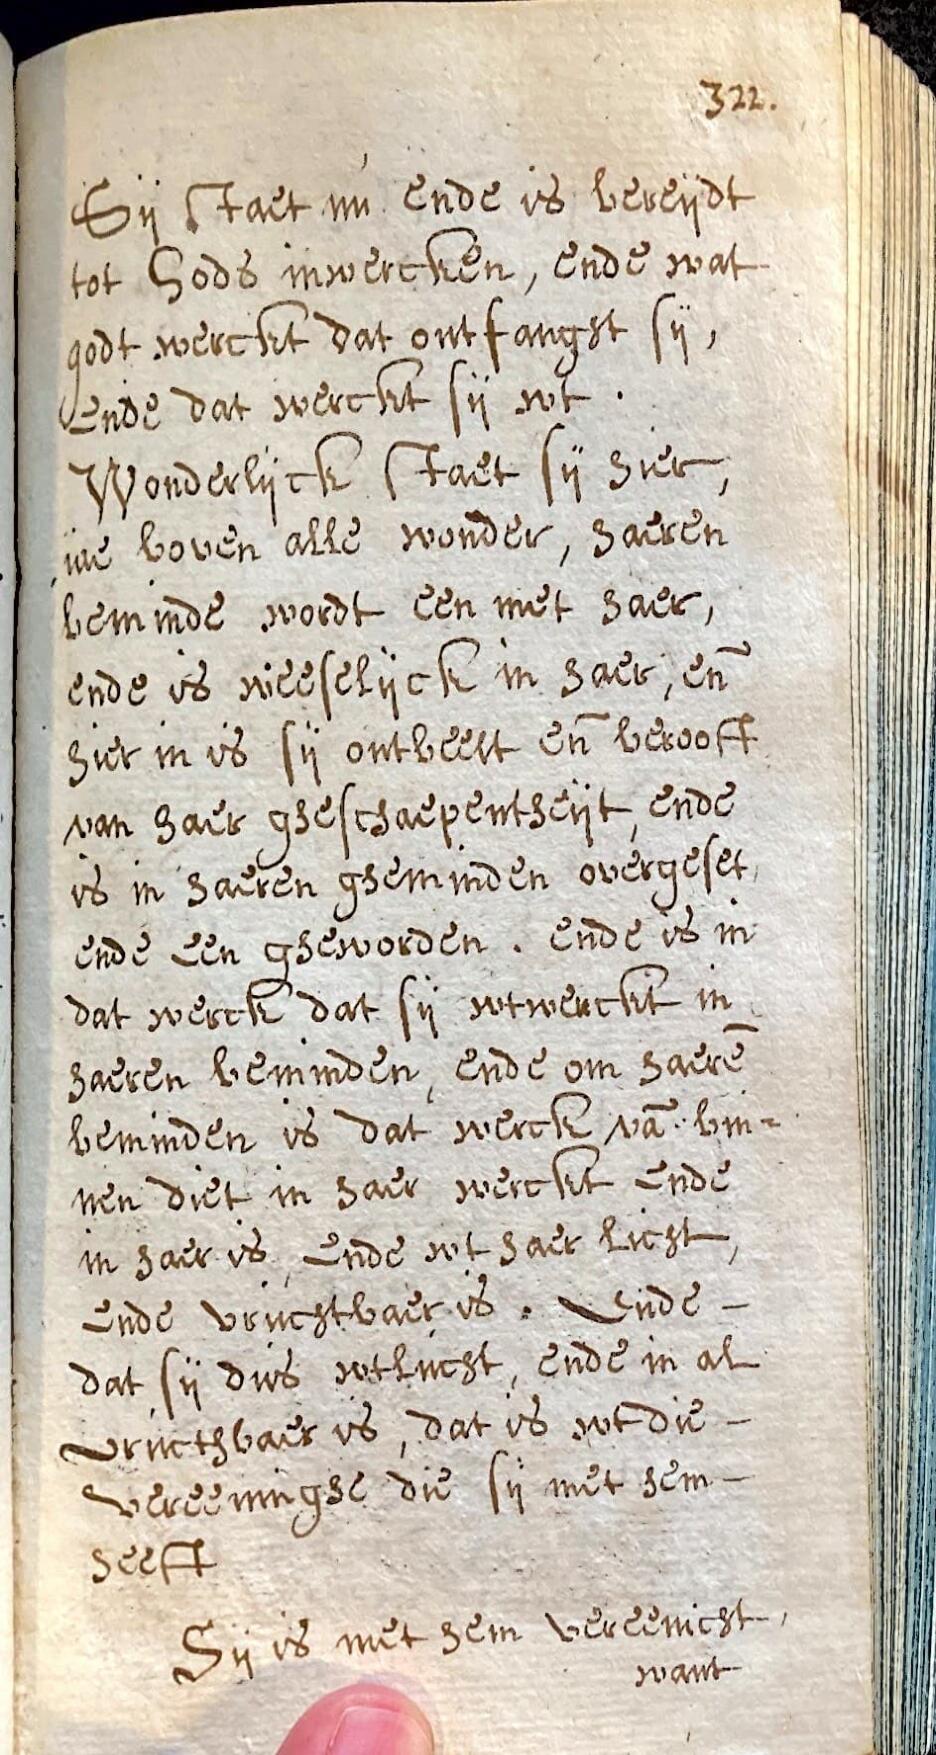 322.
Sij staet nu ende is bereijdt
tot Gods inwercken, ende wat
godt werckt dat ontfanght sij,
Ende dat werckt sij wt.
Wonderlijck staet sij hier,
jae boven alle wonder, haeren
beminde wordt een met haer,
ende is weeselijck in haer, en̄
hier in is sij ontbeelt en̄ berooft
van haer gheschaepentheijt, ende
is in haeren gheminden overgeset,
ende Een gheworden. ende is in
dat werck dat sij wtwerckt in
haeren beminden, ende om haerē
beminden is dat werck vā bin=
nen diet in haer werckt Ende
in haer is, Ende wt haer licht,
Ende vruchtbaer is. Ende –
dat sij dus wtlucht, ende in al
vructhbaer is, dat is wt die –
vereeninghe die sij met hem –
heeft
Sij is met hem vereenicht,
want